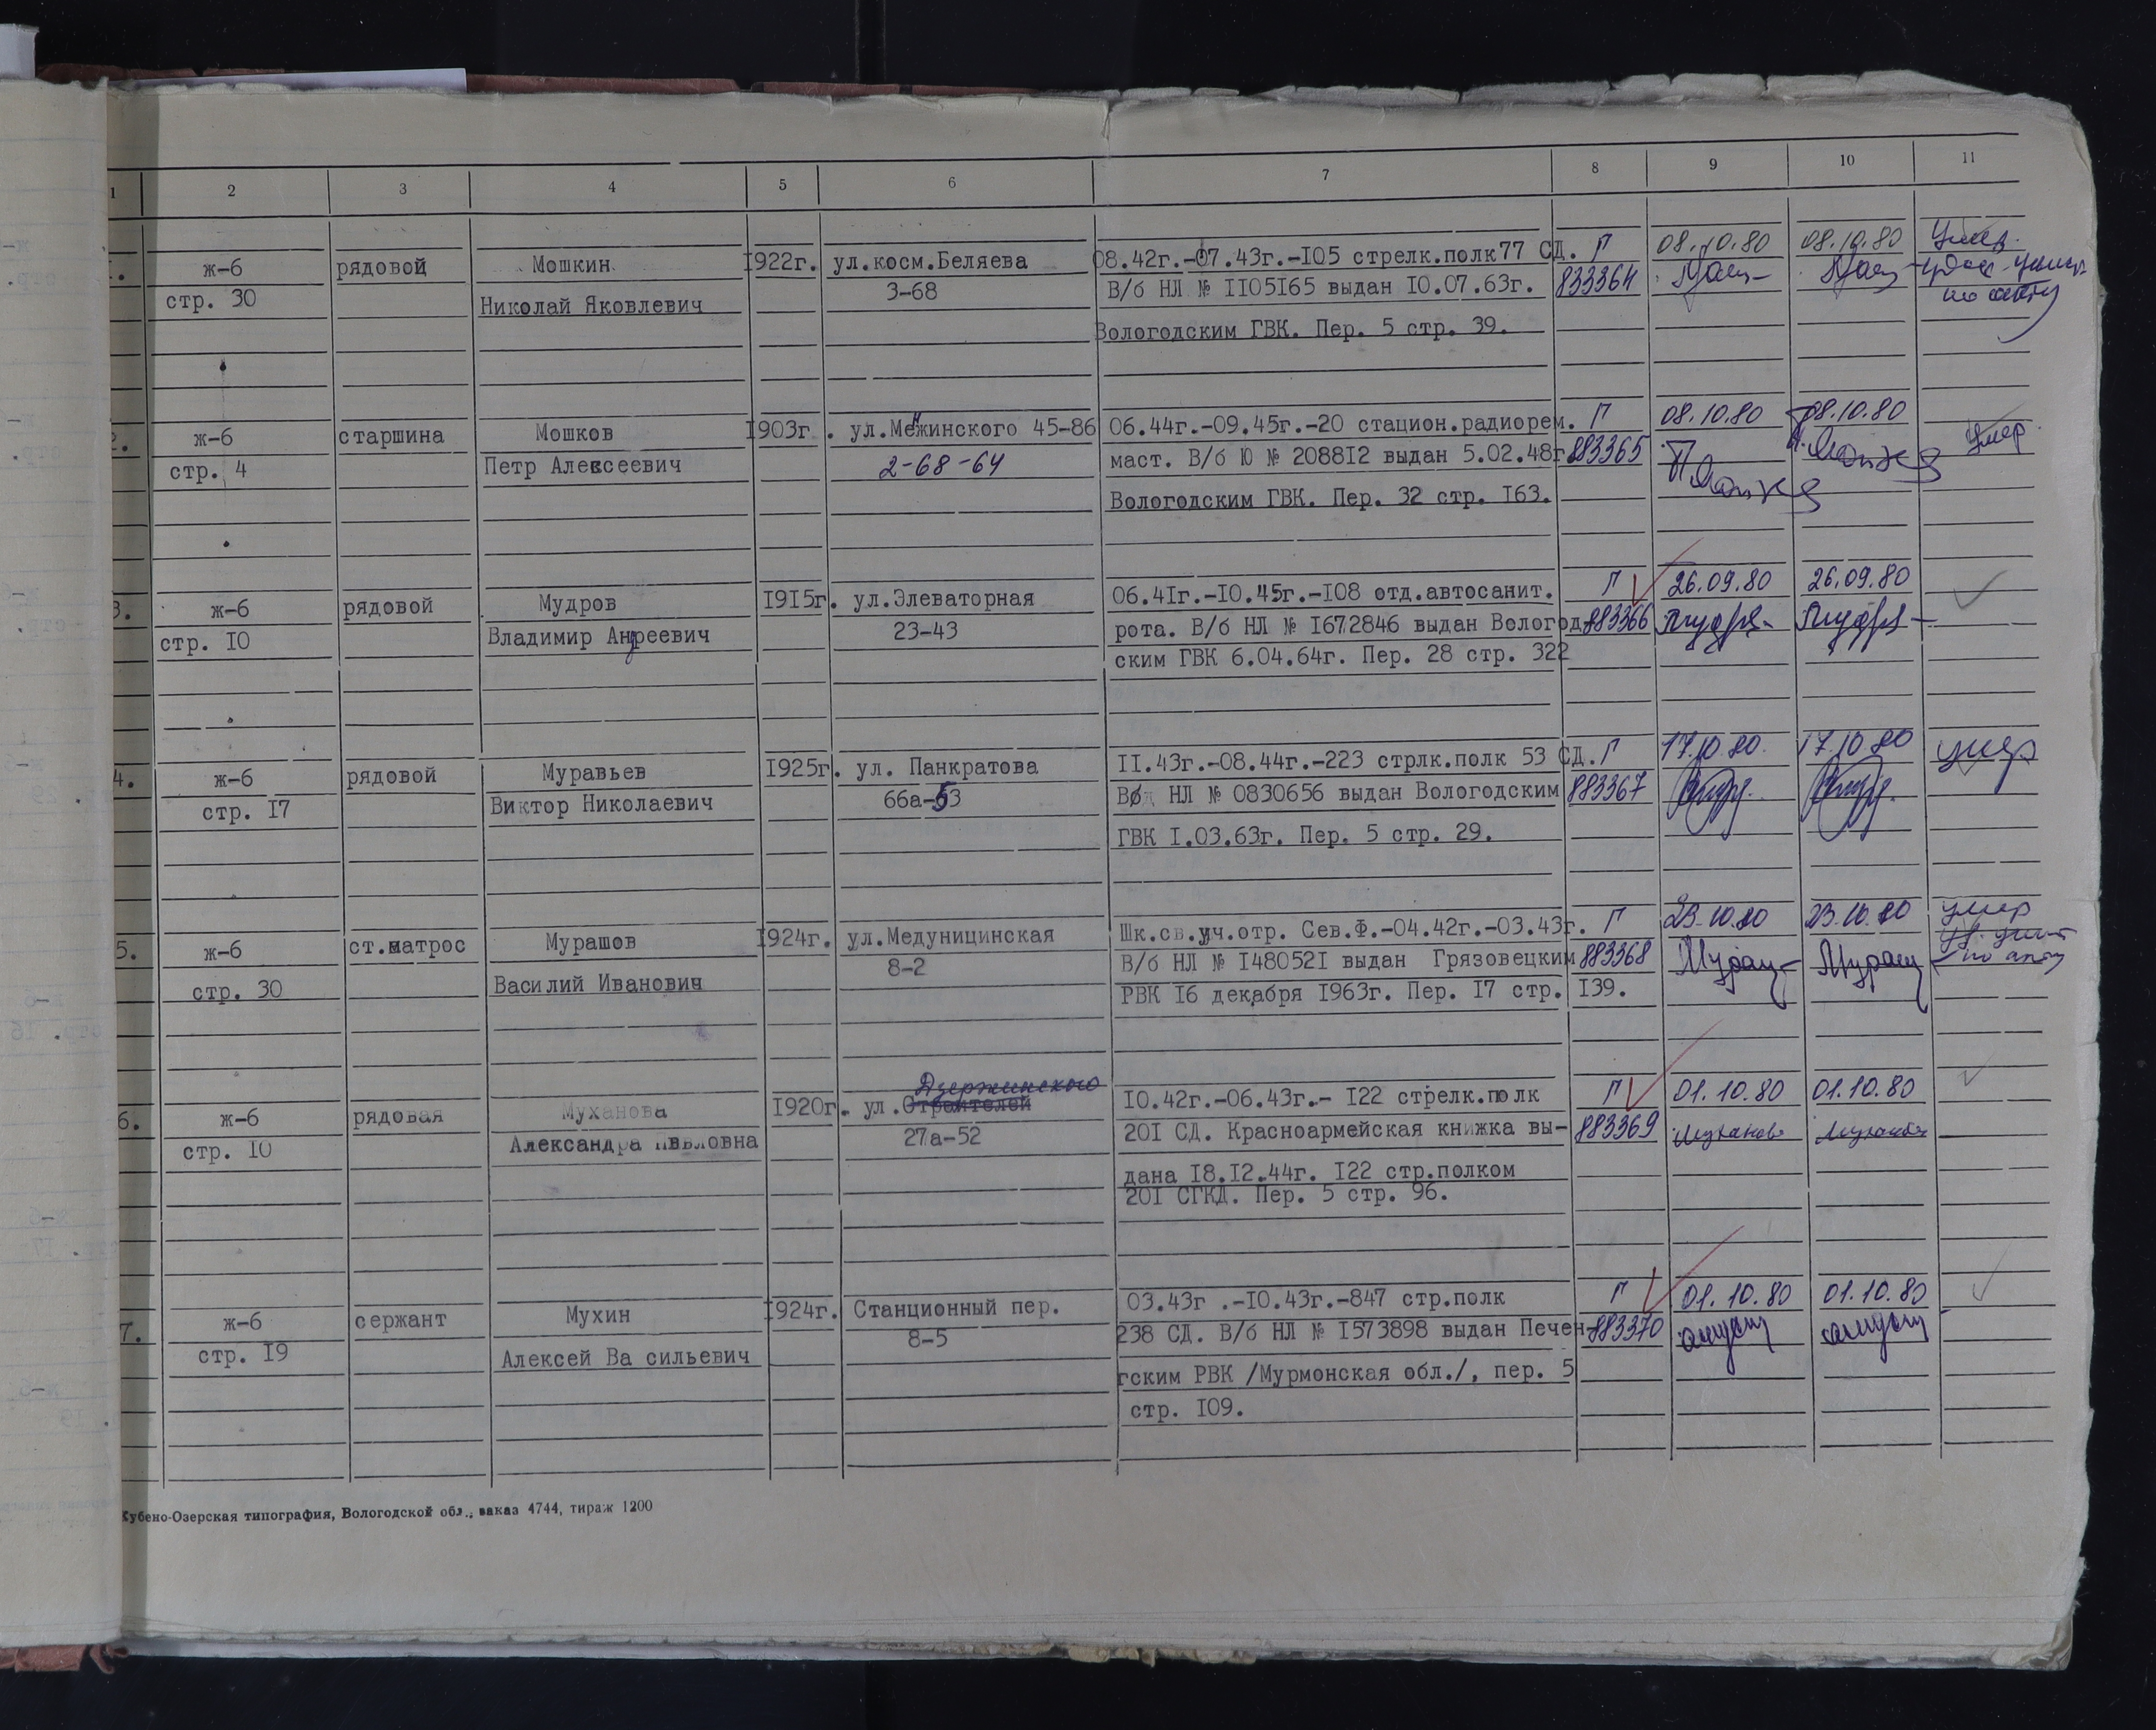 1 2 3 4 5 6 7 8 9 10 11
1. ж-б рядовой Мошкин 1922г. ул.косм.Беляева 08.42г.-07.43г.-I05 стрелк.полк77 СД. Г 08.10.80 08.10.80 Умер.
стр. 30 Николай Яковлевич 3-68 В/б НЛ № II05I65 выдан I0.07.63г. 833364 удос. уничт.
по акту
Вологодским ГВК. Пер. 5 стр. 39.
2. ж-б старшина Мошков I903г. ул.Менжинского 45-86 06.44г.-09.45г.-20 стацион.радиорем. Г 08.10.80 08.10.80 умер.
стр. 4 Петр Алексеевич 2-68-64 маст. В/б Ю № 2088I2 выдан 5.02.48г 883365
Вологодским ГВК. Пер. 32 стр. I63.
3. ж-б рядовой Мудров I9I5г. ул.Элеваторная 06.4Iг.-I0.45г.-I08 отд.автосанит. Г 26.09.80 26.09.80
стр. I0 Владимир Андреевич 23-43 рота. В/б НЛ № I672846 выдан Вологод- 883366
ским ГВК 6.04.64г. Пер. 28 стр. 322
4. ж-б рядовой Муравьев I925г. ул. Панкратова II.43г.-08.44г.-223 стрлк.полк 53 СД. Г 17.10.80. 17.10.80 умер
стр. I7 Виктор Николаевич 66а-53 НЛ № 0830656 выдан Вологодским 883367
ГВК I.03.63г. Пер. 5 стр. 29.
5. ж-б ст.матрос Мурашов I924г. ул.Медуницинская Шк.св.уч.отр. Сев.Ф.-04.42г.-03.43г. Г 23.10.80 23.10.80 умер
стр. 30 Василий Иванович 8-2 В/б НЛ № I48052I выдан Грязовецким 883368 Мураш Мураш по акту
РВК I6 декабря I963г. Пер. I7 стр. I39.
Дзержинского
6. ж-б рядовая Муханова I920г. ул.Строителей I0.42г.-06.43г.- I22 стрелк.полк Г 01.10.80 01.10.80
стр. I0 Александра Павловна 27а-52 20I СД. Красноармейская книжка вы- 883369 Муханова Муханова
дана I8.I2.44г. I22 стр.полком
20I СГКД. Пер. 5 стр. 96.
7. ж-б сержант Мухин I924г. Станционный пер. 03.43г .-I0.43г.-847 стр.полк Г 01.10.80 01.10.80
стр. I9 Алексей Ва сильевич 8-5 238 СД. В/б НЛ № I573898 выдан Печен- 883370
гским РВК /Мурмонская обл./, пер. 5
стр. I09.
Кубено-Озерская типография, Вологодской обл., заказ 4744, тираж 1200